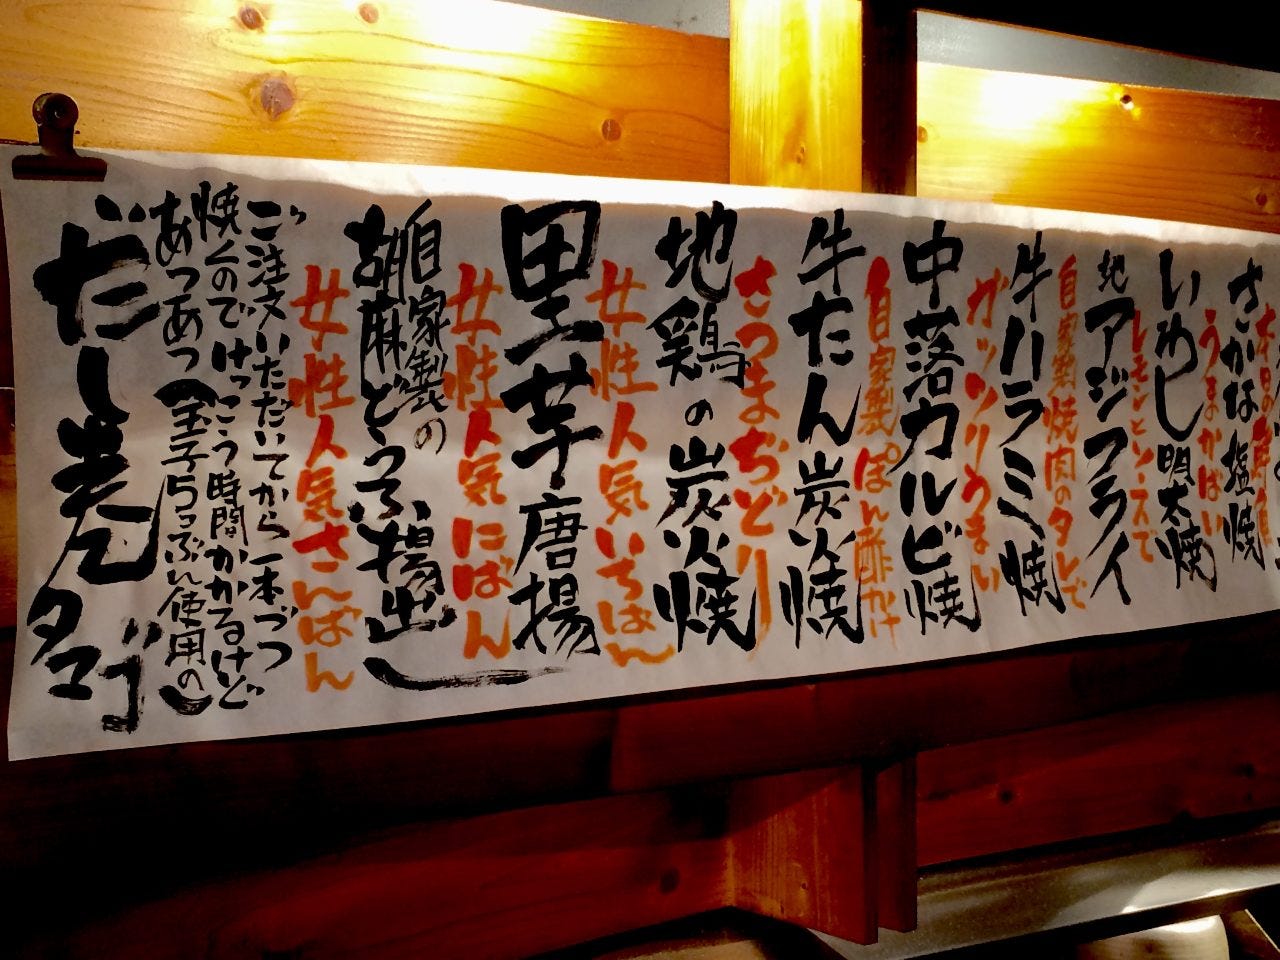 本日の
さかな塩焼
うまかばい
いわし明太焼
レモンとソースで
地アジフライ
自家製焼肉のタレで
牛ハラミ焼
ガッツリうまい
中落カルビ焼
自家製ぽん酢かけ
牛たん炭火焼
さつまぢどり
地鶏の炭火焼
女性人気いちばん
里芋唐揚
女性人気にばん
自家製の
胡麻どうふ揚出し
女性人気さんばん
ご注文いただいてから一本づつ
焼くのでけっこう時間かかるけど
あつあつ(玉子5コぶん使用の)
だし巻タマゴ